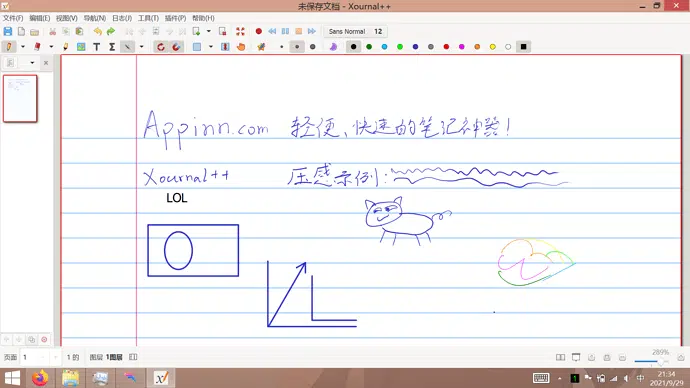 未保存文档 - Xournal++
文件(F) 编辑(E) 视图(V) 导航(N) 日志(J) 工具(T) 插件(P) 帮助(H)
Sans Normal 12
Appinn.com 轻便、快速的笔记神器!
Xournal++ 压感示例:
LOL
289%
页面 1 1 的 图层 1图层
中 21:34
2021/9/29